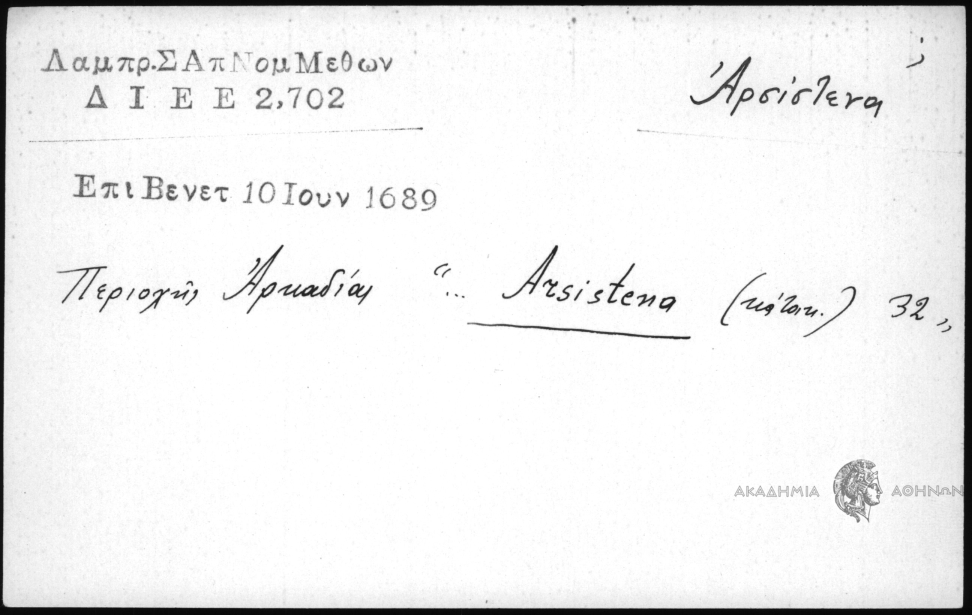 Λαμπρ.ΣΑπΝομΜεθων
Δ Ι Ε Ε 2,702
Ἀρσίστενα ;
Επι Βενετ 10 Ιουν 1689
Περιοχῆς Ἀρκαδίας “... Arsistena (κάτοικ.) 32 „
ΑΚΑΔΗΜΙΑ ΑΘΗΝΩΝ